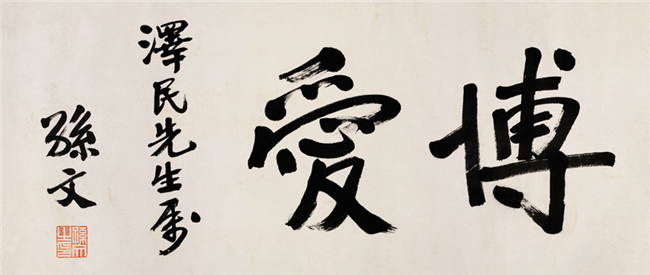 博愛
澤民先生属
孫文
孫文之印